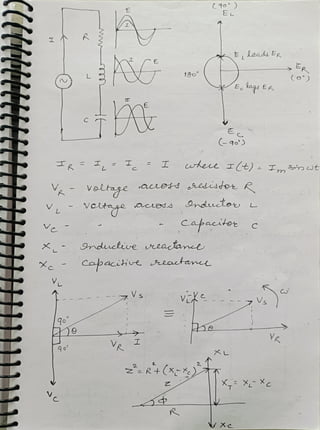 (90°)
E_L
I
R
E
I
E_L leads E_R
180°
E_R
(0°)
L
I
E
E_C lags E_R
C
I
E
E_C
(-90°)
I_R = I_L = I_C = I where I(t) = I_m sin ωt
V_R - Voltage across resistor R
V_L - Voltage across Inductor L
V_C - " " Capacitor C
X_L - Inductive reactance
X_C - Capacitive reactance
V_L
V_S
90°
θ
90°
V_R
I
V_C
≡
V_L-V_C
V_S
ω
θ
V_R
Z² = R² + (X_L - X_C)²
X_L
Z
X_T = X_L - X_C
φ
R
X_C